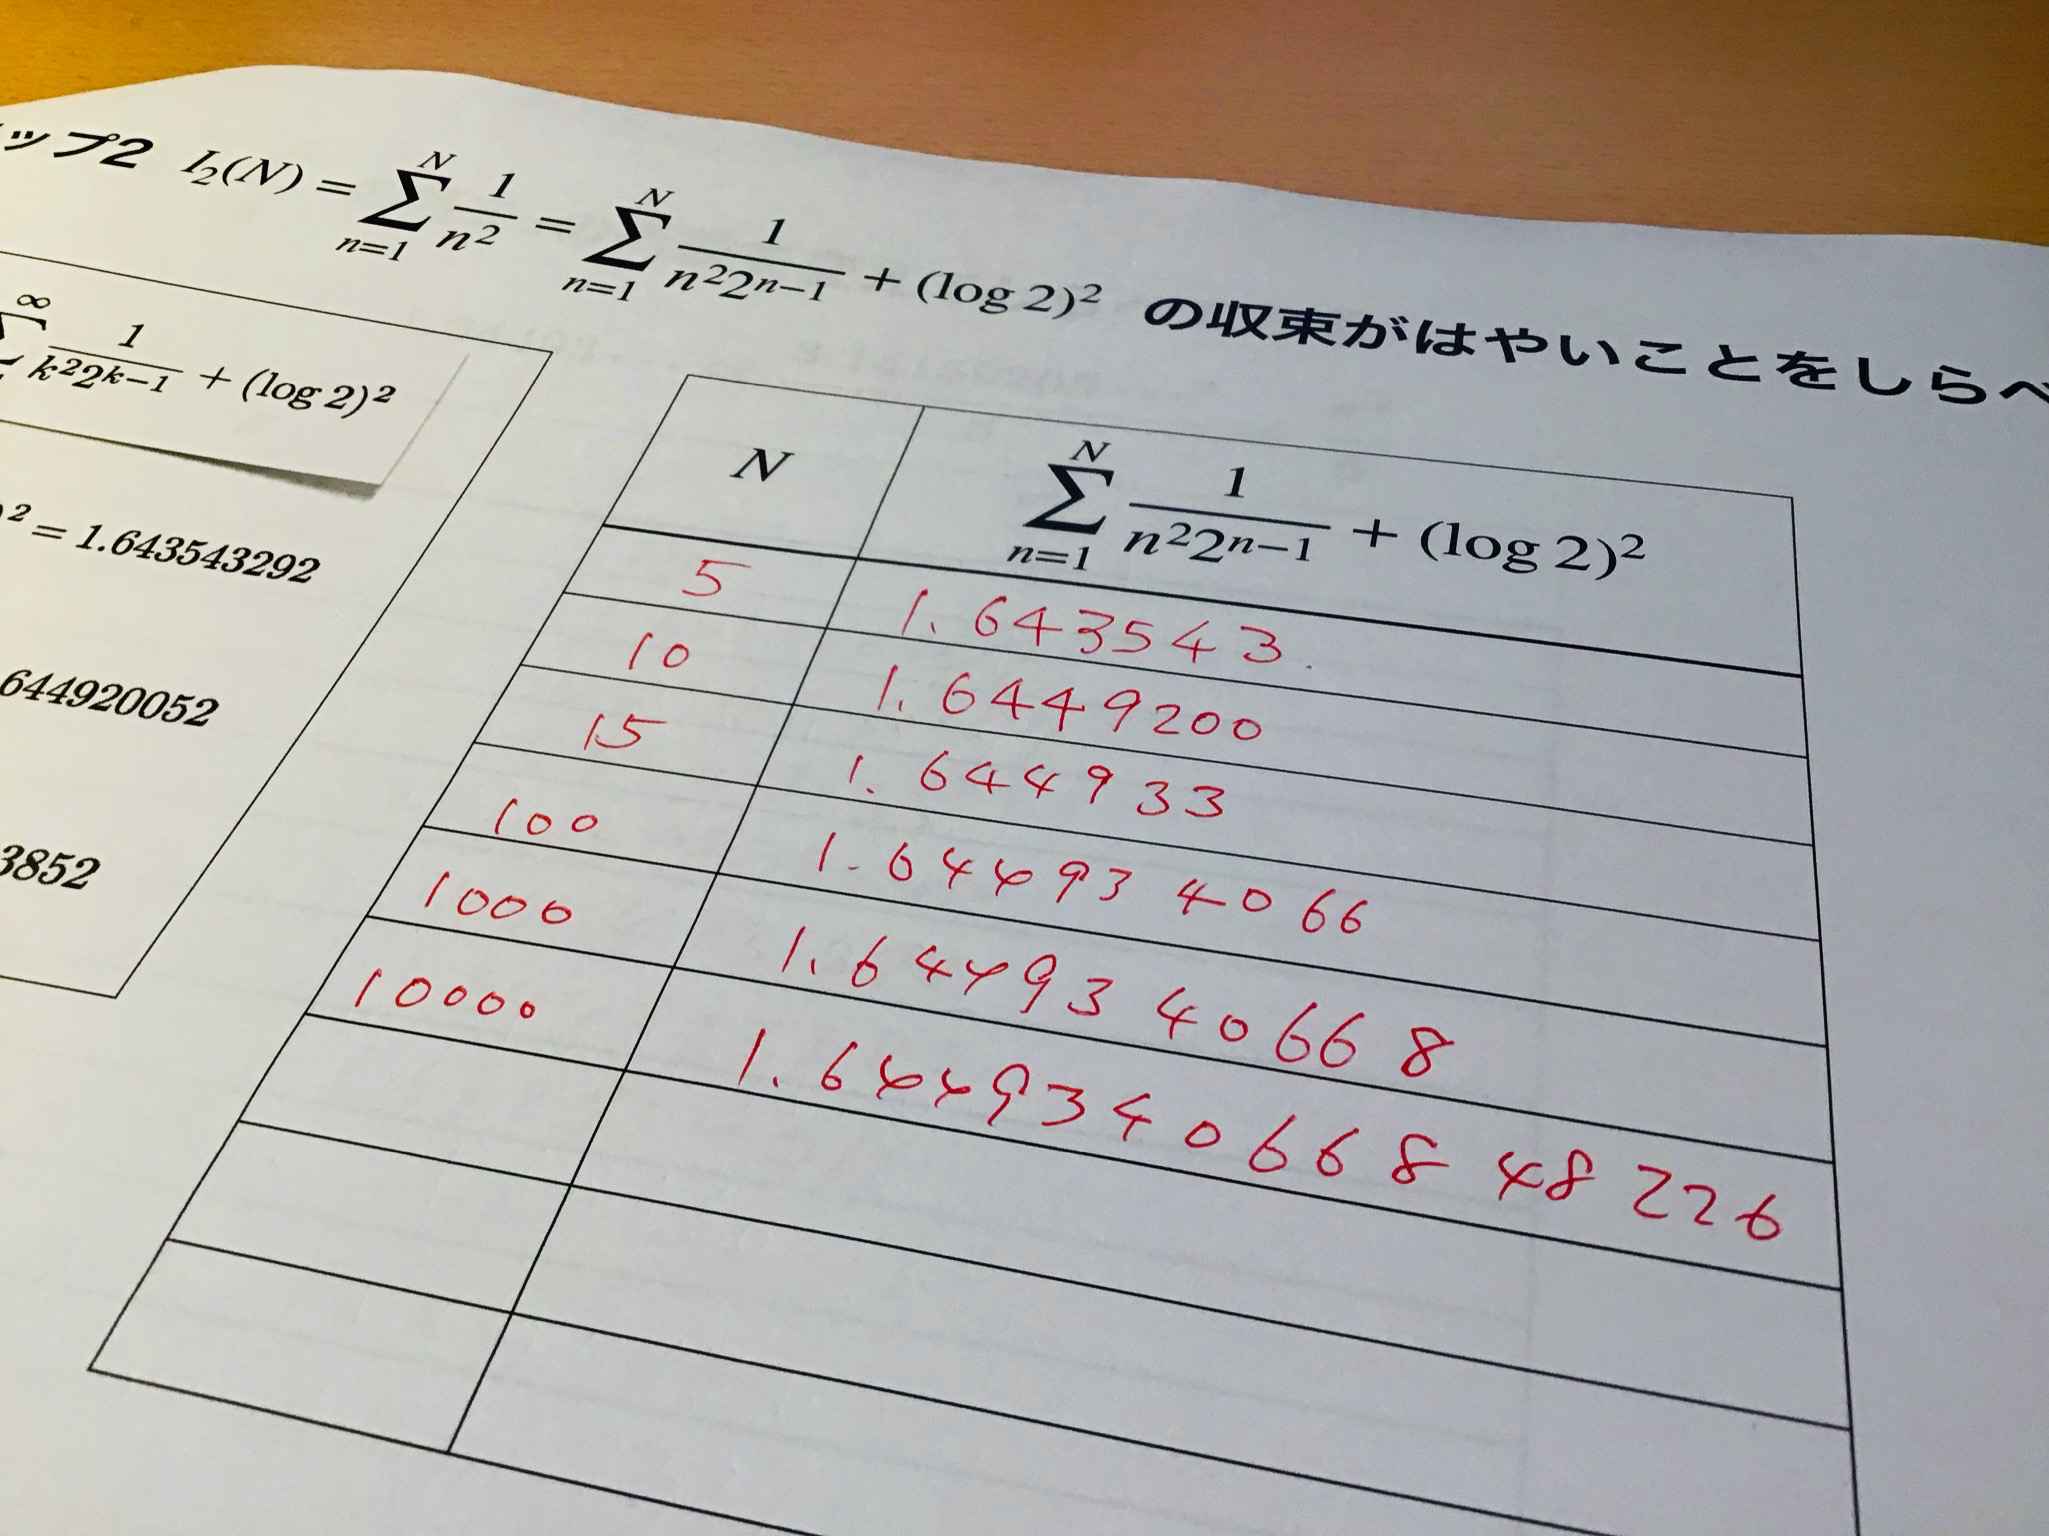 ップ2 I₂(N) = \sum_{n=1}^{N} \frac{1}{n^2} = \sum_{n=1}^{N} \frac{1}{n^2 2^{n-1}} + (log 2)² の収束がはやいことをしらべ
\sum^{∞} \frac{1}{k^2 2^{k-1}} + (log 2)²
)² = 1.643543292
644920052
3852
N \sum_{n=1}^{N} \frac{1}{n^2 2^{n-1}} + (log 2)²
5 1.643543.
10 1.6449200
15 1.644933
100 1.644934066
1000 1.6449340668
10000 1.644934066848226